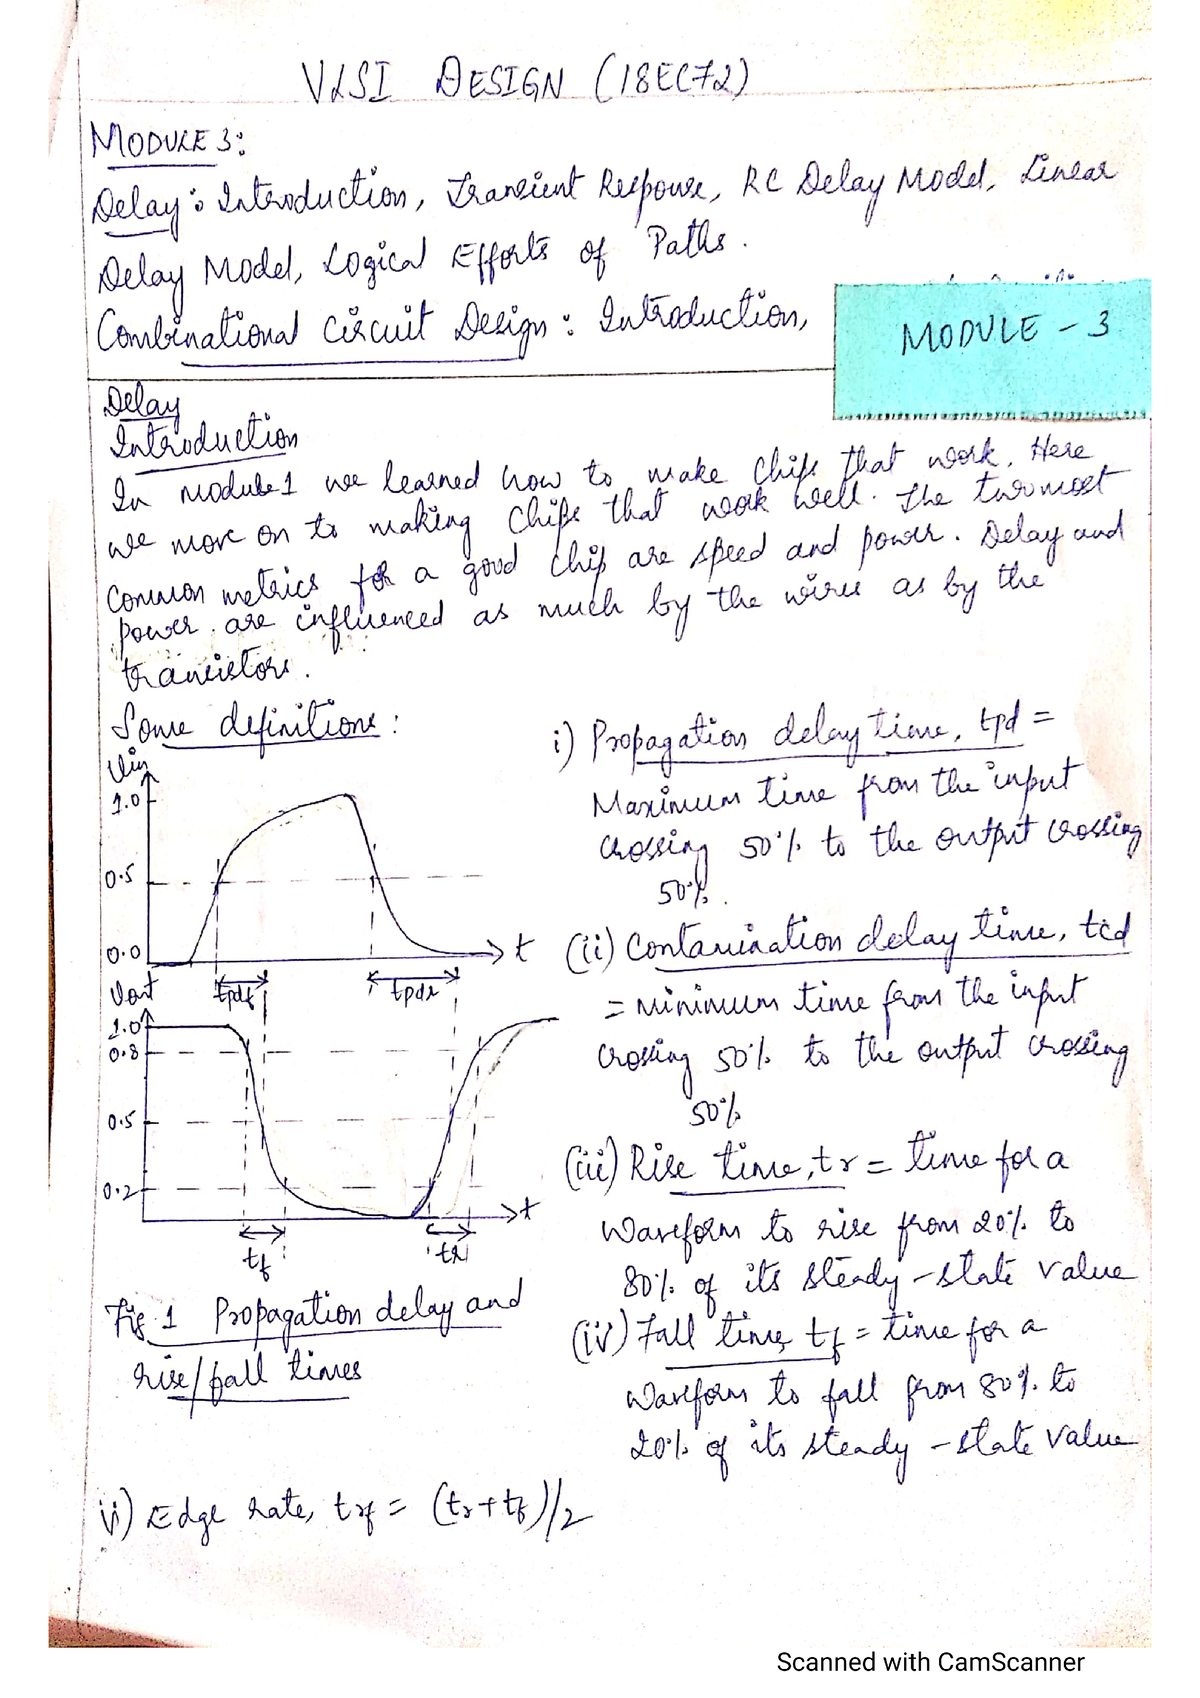 VLSI DESIGN (18EC72)
MODULE 3:
Delay: Introduction, Transient Response, RC Delay Model, Linear
Delay Model, Logical Efforts of Paths.
Combinational Circuit Design: Introduction,
MODULE - 3
Delay
Introduction
In module 1 we learned how to make chips that work. Here
we move on to making chips that work well. The two most
common metrics for a good chip are speed and power. Delay and
power are influenced as much by the wires as by the
transistors.
Some definitions:
Vin
1.0
0.5
0.0
t
tpdf
tpdr
Vout
1.0
0.8
0.5
0.2
t
tf
tr
Fig. 1 Propagation delay and
rise/fall times
i) Propagation delay time, tpd =
Maximum time from the input
crossing 50% to the output crossing
50%.
(ii) Contamination delay time, tcd
= minimum time from the input
crossing 50% to the output crossing
50%
(iii) Rise time, tr = time for a
waveform to rise from 20% to
80% of its steady-state value
(iv) Fall time, tf = time for a
waveform to fall from 80% to
20% of its steady-state value
v) Edge rate, trf = (tr+tf)/2
Scanned with CamScanner